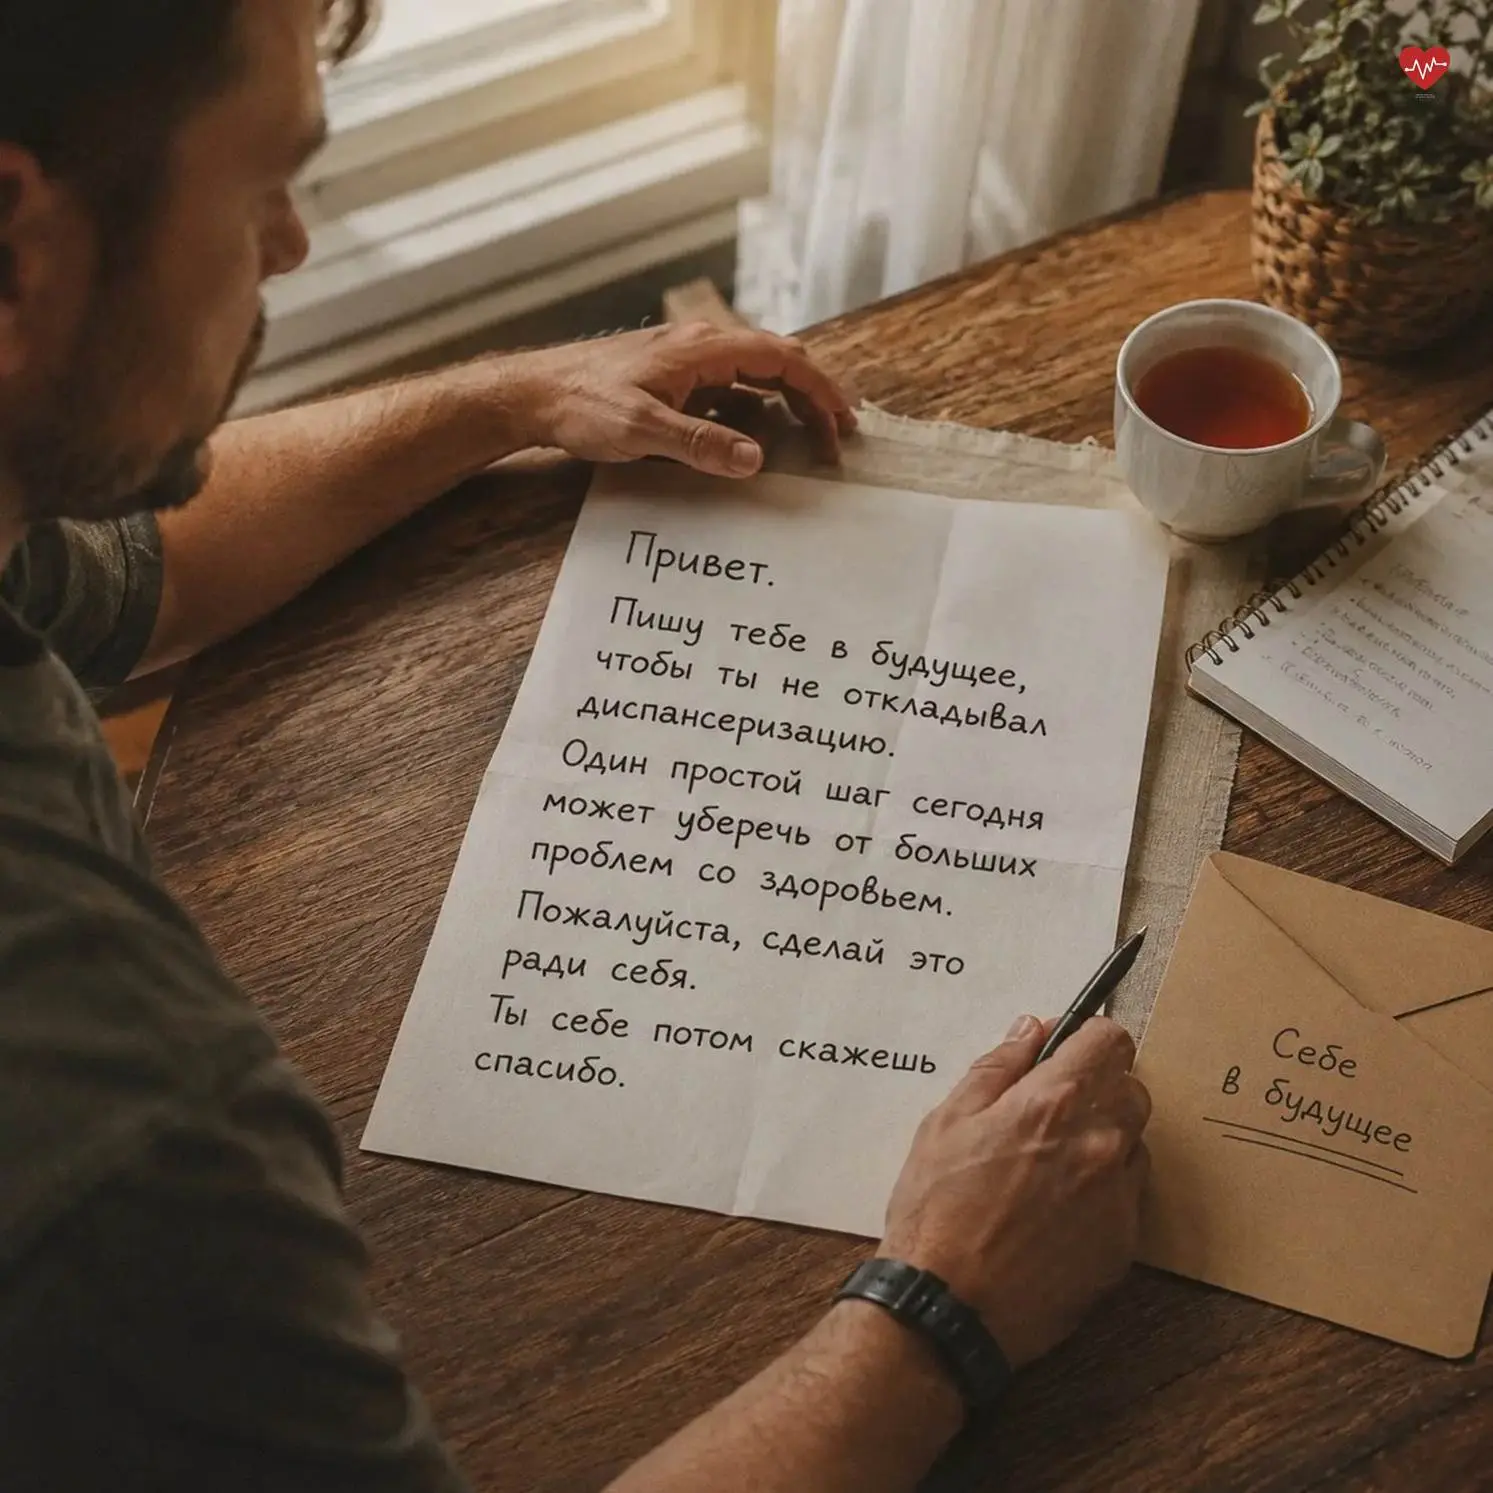 Привет.
Пишу тебе в будущее,
чтобы ты не откладывал
диспансеризацию.
Один простой шаг сегодня
может уберечь от больших
проблем со здоровьем.
Пожалуйста, сделай это
ради себя.
Ты себе потом скажешь
спасибо.
Себе
в будущее